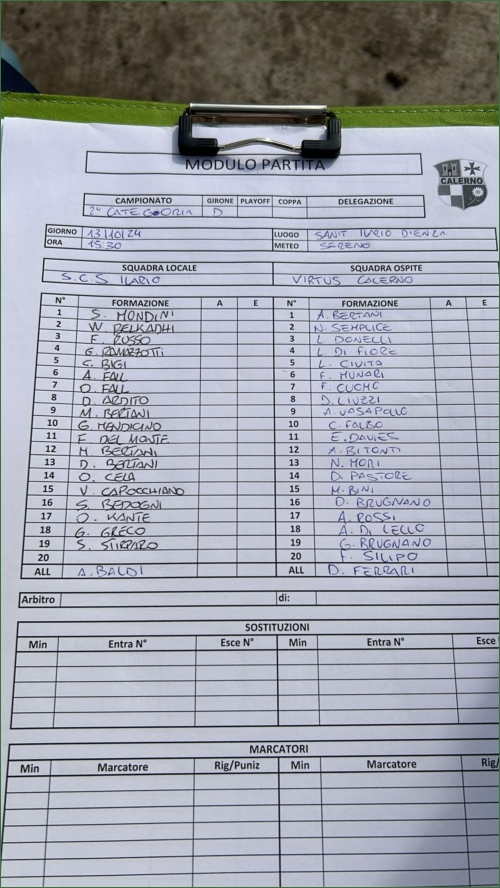 MODULO PARTITA
CALERNO
CAMPIONATO GIRONE PLAYOFF COPPA DELEGAZIONE
2° CATEGORIA D
GIORNO 13/10/24 LUOGO SANT'ILARIO D'ENZA
ORA 15:30 METEO SERENO
SQUADRA LOCALE SQUADRA OSPITE
S.C.S ILARIO VIRTUS CALERNO
N° FORMAZIONE A E N° FORMAZIONE A E
1 S. MONDINI 1 A. BERTANI
2 W. BELKADHI 2 N. SEMPLICE
3 F. RUSSO 3 L. DONELLI
4 G. RAMAZZOTTI 4 L. DI FIORE
5 C. BIGI 5 L. CIVITA
6 A. FALL 6 F. MUNARI
7 D. FALL 7 F. CUOMO
8 D. ARDITO 8 D. LIUZZI
9 M. BERTANI 9 A. VASAPOLLO
10 G. MENDICINO 10 C. FALBO
11 F. DEL MONTE 11 E. DAVIES
12 M. BERTANI 12 A. BITONTI
13 D. BERTANI 13 N. MORI
14 O. CELA 14 D. PASTORE
15 V. CAPOCCHIANO 15 M. BINI
16 S. BEDOGNI 16 D. BRUGNANO
17 O. KANTE 17 A. ROSSI
18 G. GRECO 18 A. DI LELLO
19 S. STIRPARO 19 G. BRUGNANO
20 20 F. SILIPO
ALL A. BALDI ALL D. FERRARI
Arbitro di:
SOSTITUZIONI
Min Entra N° Esce N° Min Entra N° Esce
MARCATORI
Min Marcatore Rig/Puniz Min Marcatore Rig/